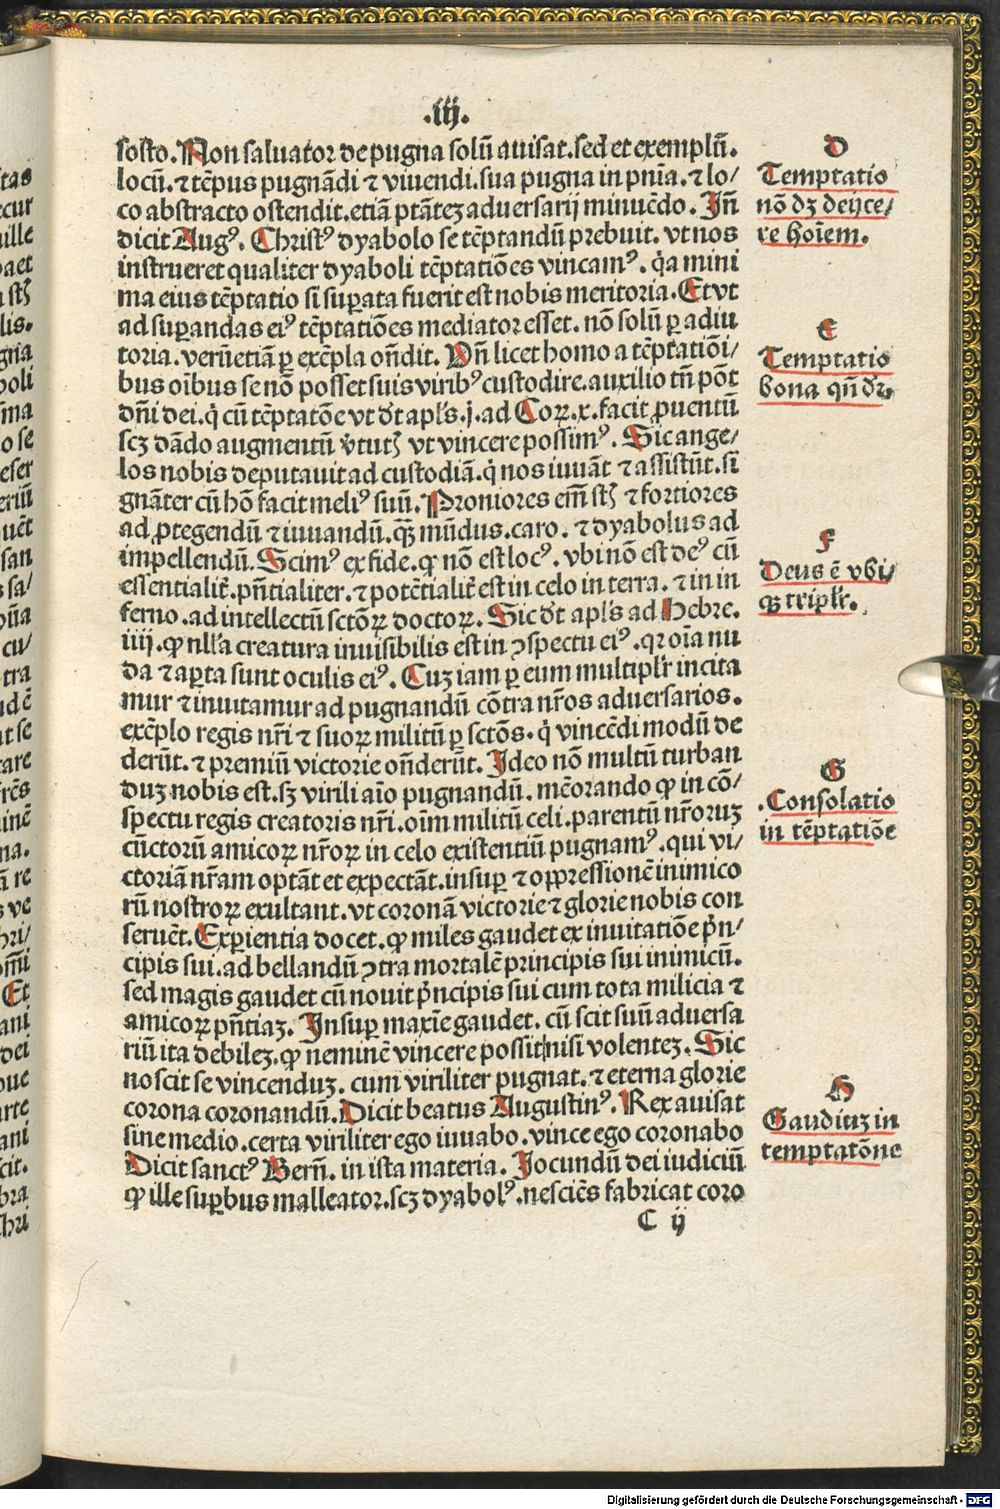 .iij.
sosto. Non saluator de pugna solū auisat. sed et exemplū.
locū. ⁊ tēpus pugnādi ⁊ viuendi. sua pugna in pnīa. ⁊ lo/
co abstracto ostendit. etiā ptātez aduersarij minuēdo. Jn̄
dicit Augꝰ. Christꝰ dyabolo se tēptandū prebuit. vt nos
instrueret qualiter dyaboli tēptatiōes vincamꝰ. q̓a mini
ma eius tēptatio si suꝑata fuerit est nobis meritoria. Et vt
ad suꝑandas eiꝰ tēptatiōes mediator esset. nō solū ꝑ adiu
toria. verūetiā ꝑ exēpla on̄dit. Vn̄ licet homo a tēptatiōi/
bus oībus se nō posset suis viribꝰ custodire. auxilio tn̄ pōt
dn̄i dei. q̓ cū tēptatōe vt dr̄t apl̄s. j. ad Coꝝ. x. facit ꝓuentū
scꝫ dādo augmentū v̓tutꝭ vt vincere possimꝰ. Sic ange/
los nobis deputauit ad custodiā. q̓ nos iuuāt ⁊ assistūt. si
gnāter cū hō facit meliꝰ suū. Proniores em̄ stꝭ ⁊ fortiores
ad ꝓtegendū ⁊ iuuandū. qꝫ̄ mūdus. caro. ⁊ dyabolus ad
impellendū. Scimꝰ ex fide. ꝙ nō est locꝰ. vbi nō est deꝰ cū
essentialit̄. pn̄tialiter. ⁊ potētialit̄ est in celo in terra. ⁊ in in
ferno. ad intellectū sctōꝝ doctoꝝ. Sic dt̄ apl̄s ad Hebre.
iiij. ꝙ nll̓a creatura inuisibilis est in ↄspectu eiꝰ. qr oīa nu
da ⁊ aꝑta sunt oculis eiꝰ. Cuꝫ iam ꝑ eum multipl̄r incita
mur ⁊ inuitamur ad pugnandū cōtra nr̄os aduersarios.
exēplo regis nr̄i ⁊ suoꝝ militū ꝑ sctōs. q̓ vincēdi modū de
derūt. ⁊ premiū victorie on̄derūt. Jdeo nō multū turban
duꝫ nobis est. sꝫ virili aīo pugnandū. mēorando ꝙ in cō/
spectu regis creatoris nr̄i. oīm militū celi. parentū nr̄oruꝫ
cūctorū amicoꝝ nr̄oꝝ in celo existentiū pugnamꝰ. qui vi/
ctoriā nr̄am optāt et expectāt. insuꝑ ⁊ oppressionē inimico
rū nostroꝝ exultant. vt coronā victorie ⁊ glorie nobis con
seruēt. Exꝑientia docet. ꝙ miles gaudet ex inuitatiōe p̓n/
cipis sui. ad bellandū ↄtra mortalē principis sui inimicū.
sed magis gaudet cū nouit p̓ncipis sui cum tota milicia ⁊
amicoꝝ pn̄tiaꝫ. Jnsuꝑ maxīe gaudet. cū scit suū aduersa
riū ita debileꝫ. ꝙ neminē vincere possit nisi volenteꝫ. Sic
no scit se vincenduꝫ. cum viriliter pugnat. ⁊ eterna glorie
corona coronandū. Dicit beatus Augustinꝰ. Rex auisat
sine medio. certa viriliter ego iuuabo. vince ego coronabo
Dicit sanctꝰ Bern̄. in ista materia. Jocundū dei iudiciū
ꝙ ille suꝑbus malleator. scꝫ dyabolꝰ. nesciēs fabricat coro
C ij
D
Temptatio
nō dꝫ deijce/
re hoīem.
E
Temptatio
bona qn̄ dr̄.
F
Deus ē vbi/
qꝫ tripl̄r.
G
.Consolatio
in tēptatiōe
H
Gaudiuꝫ in
temptatōne
Digitalisierung gefördert durch die Deutsche Forschungsgemeinschaft - DFG